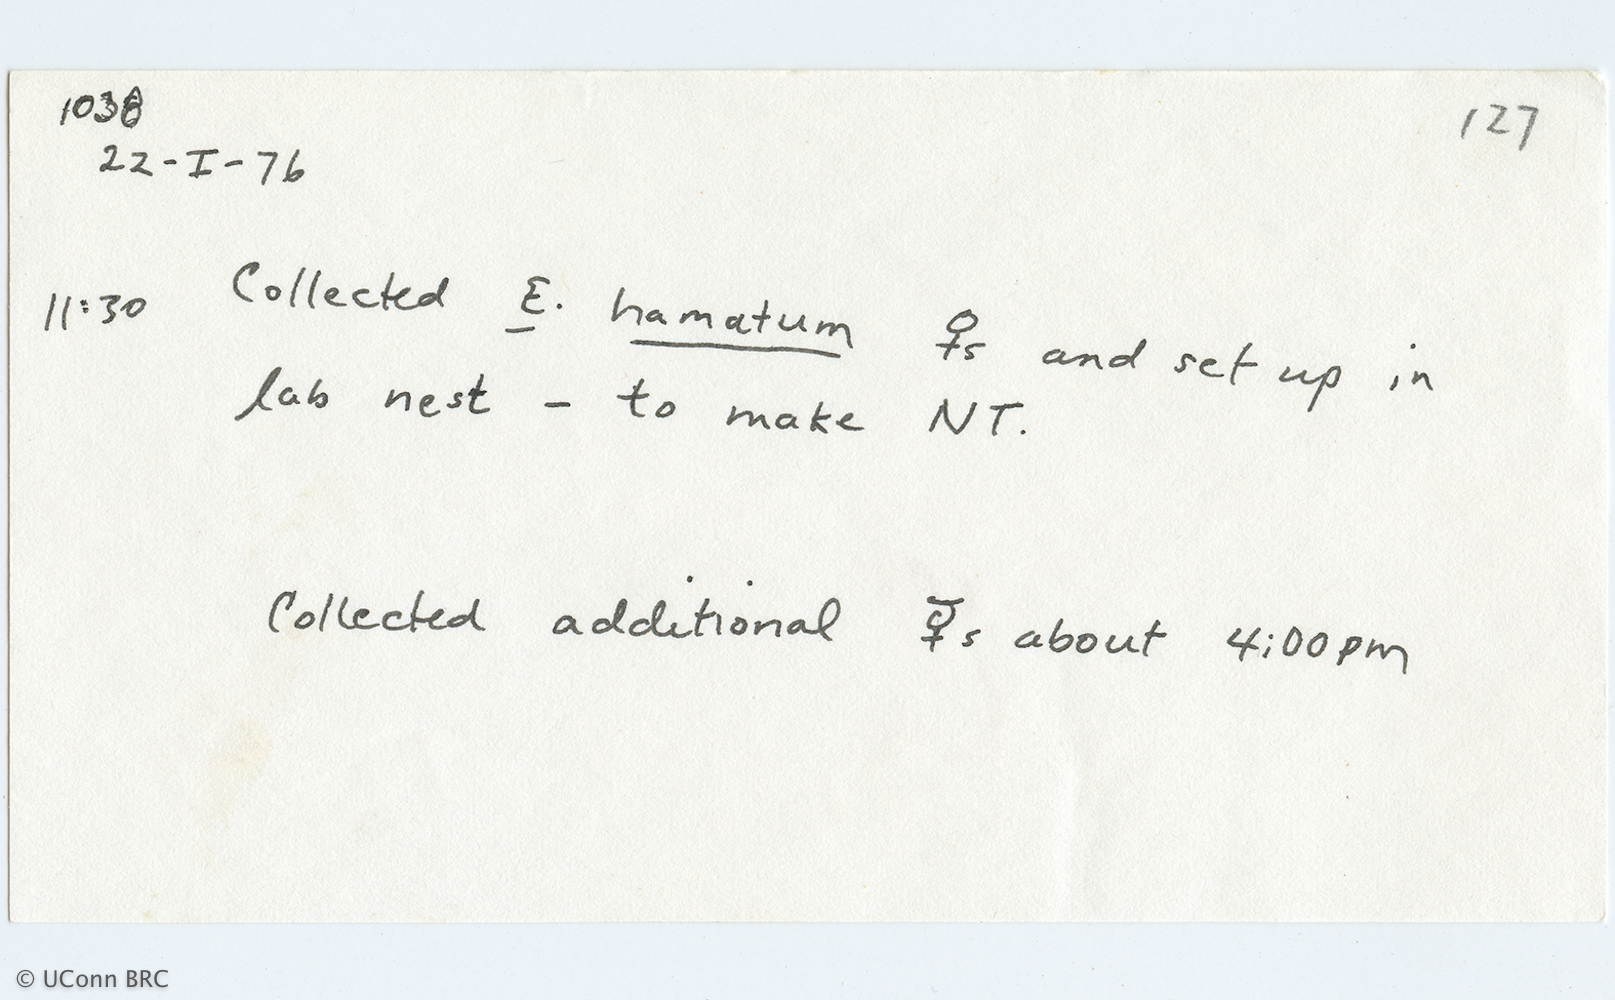 1038
127
22-I-76
11:30 Collected E. hamatum ♀s and set up in
lab nest - to make NT.
Collected additional ☿s about 4:00pm
© UConn BRC